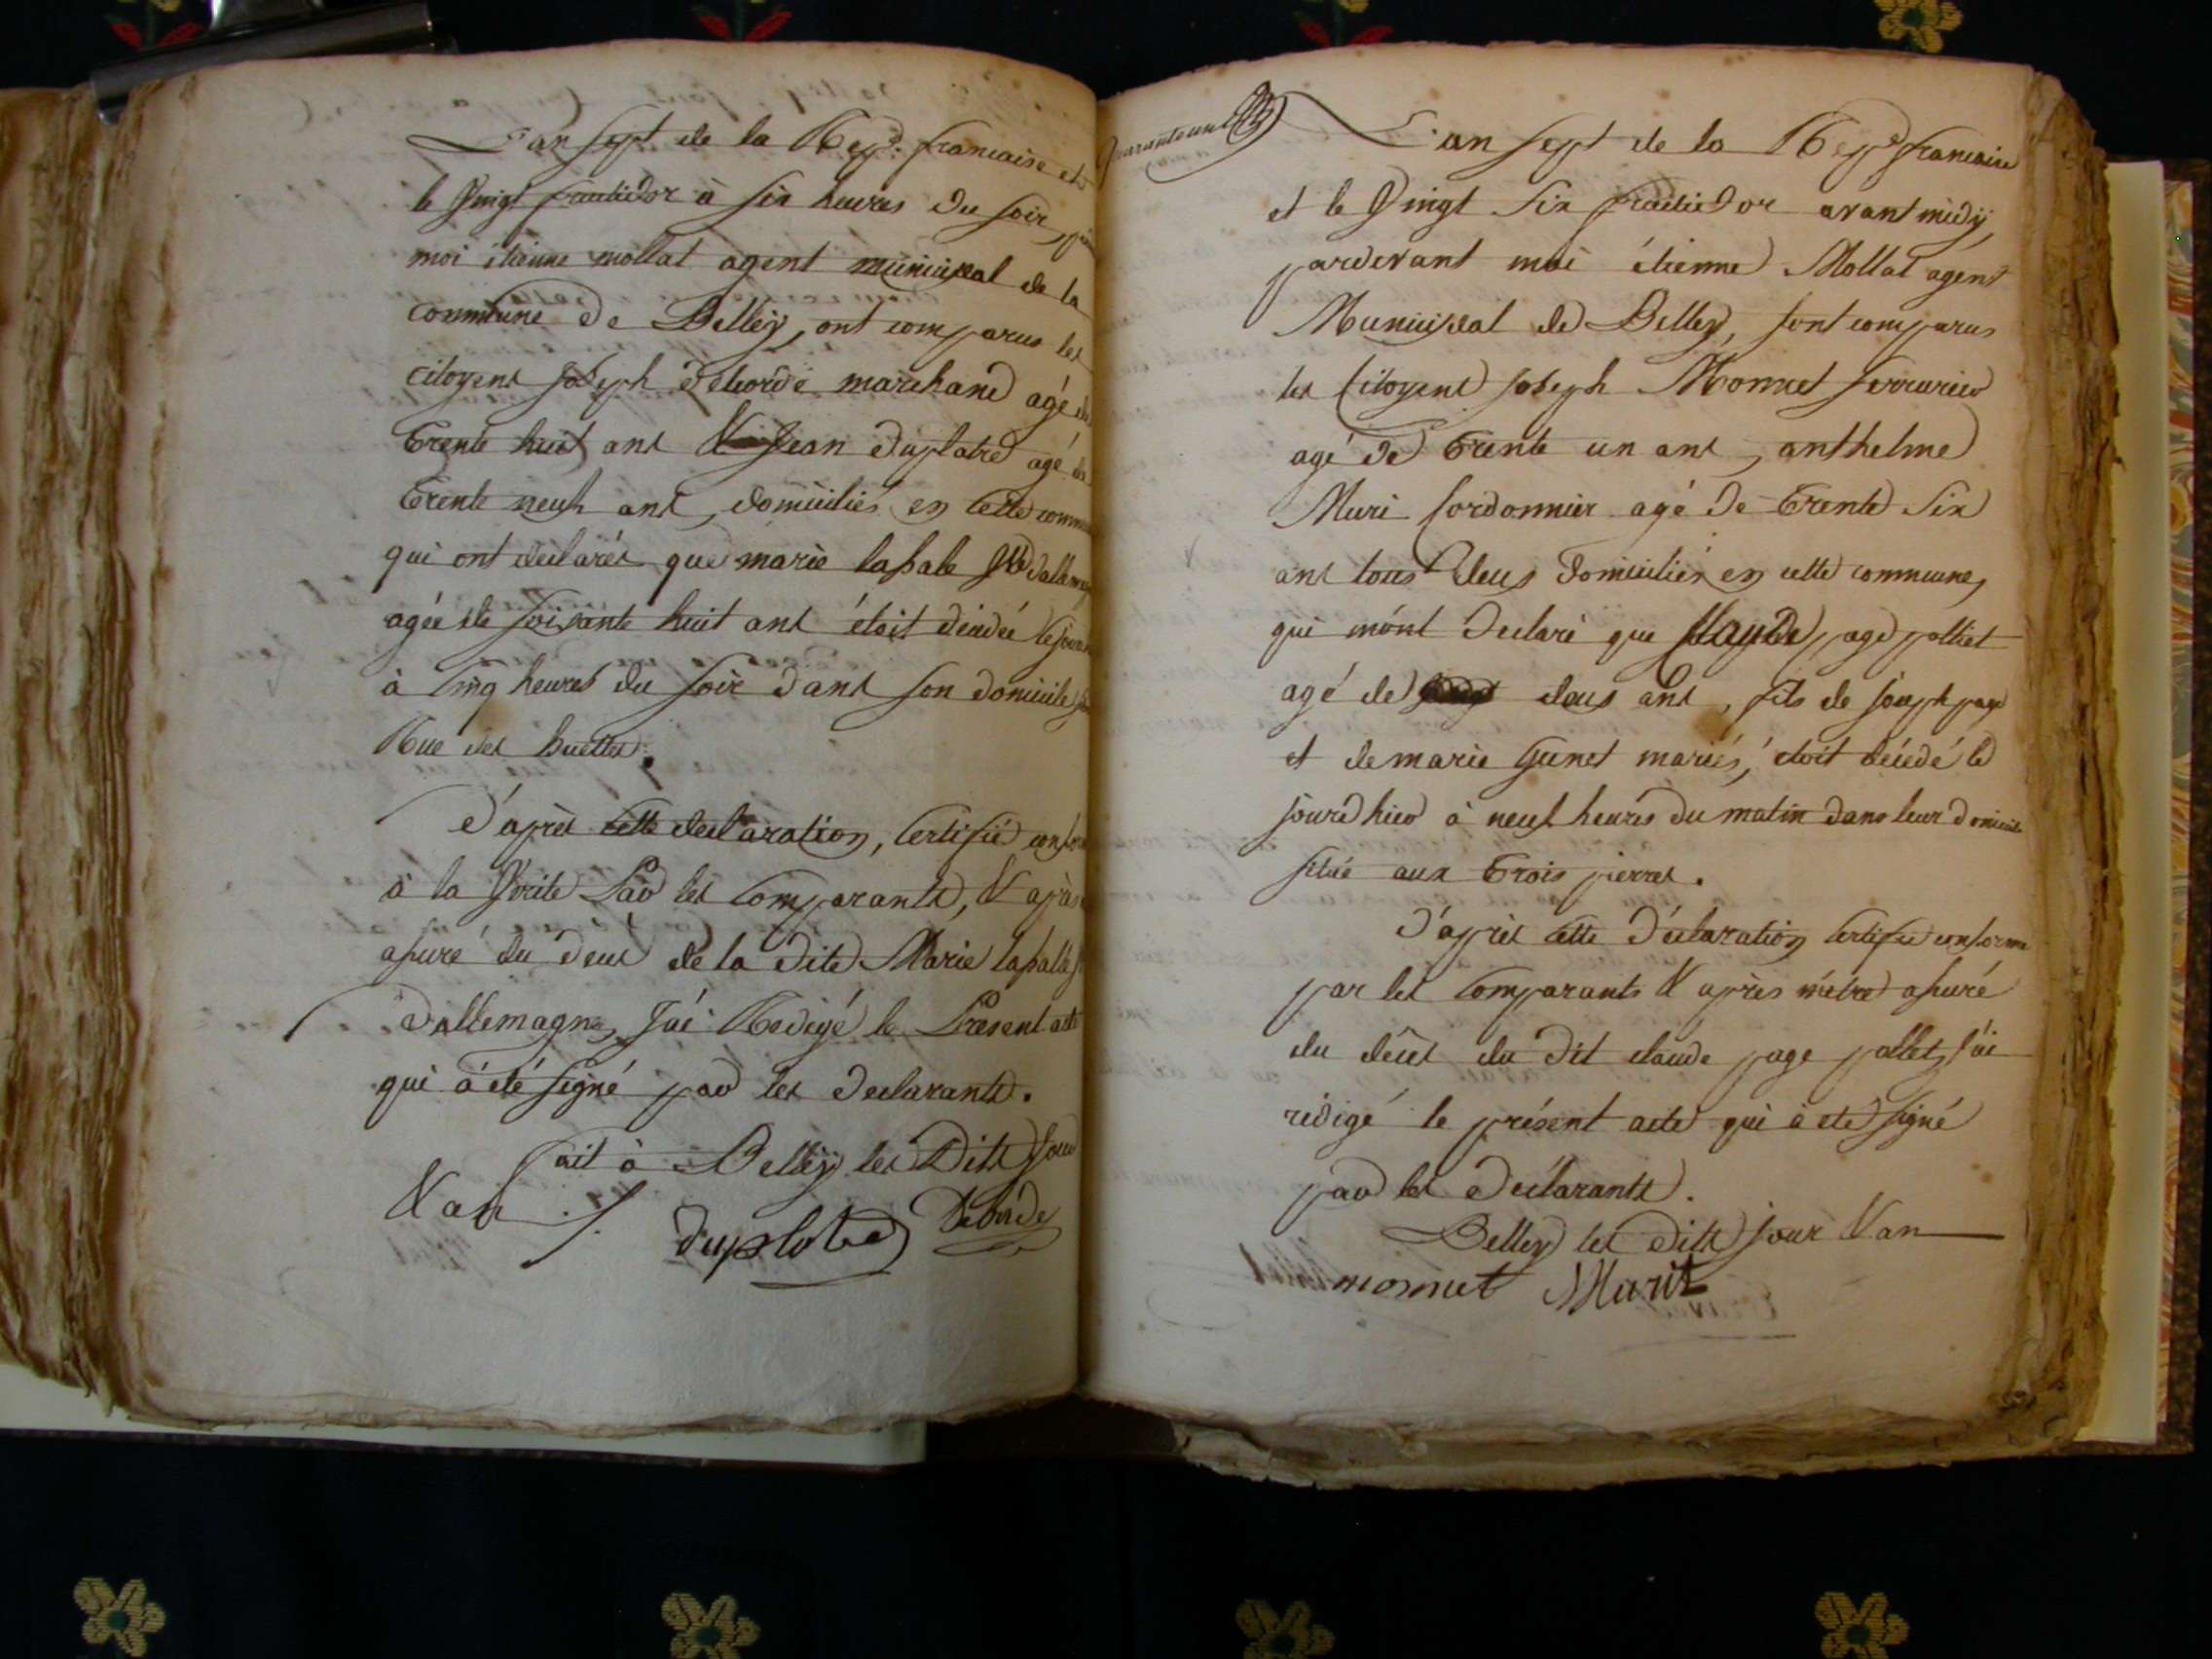 L'an sept de la Rep.e francaise et
le Vingt fructidor à six heures du soir,
moi étienne mollat agent municipal de la
commune de Belley, ont comparus les
citoyens Joseph Deborde marchand agé de
trente huit ans & Jean Duplatre agé de
trente neuf ans, domiciliés en cette comm
qui ont declarés que marie lassale Ve dallem
agée de soixante huit ans étoit décédée le jour
à cinq heures du soir dans son domicile
Rue des huettes.
D'après cette declaration, Certifié conf
à la Vérité Par les Comparants, & après
assuré du deces de la dite Marie lassalle
Dallemagne, J'ai Redigé le Present acte
qui à été signé par les Declarants.
Fait à Belley les Dits Jour
& an 7.
duplatre Deborde
quarante un
L'an sept de la Rep.e francaise
et le Vingt Six fructidor avant midÿ
pardevant moi étienne Mollat agent
Municipal de Belley, sont comparus
les Citoyens Joseph Monnet serrurier
agé de trente un ans, anthelme
Muri Cordonnier agé de trente Six
ans tous deux domiciliés en cette commune,
qui m'ont declaré que Claude page polliet
agé de deux ans, fils de joseph page
et de marie Gunet mariés, étoit décédé le
jourd'hier à neuf heures du matin dans leur domicile
situé aux trois pierres.
D'après cette Déclaration Certifié conforme
par les Comparants & après m'être assuré
du décès du dit claude page pollet, j'ai
rédigé le présent acte qui à été signé
par les Déclarants.
Belley les Dits jour & an
monnet Murit